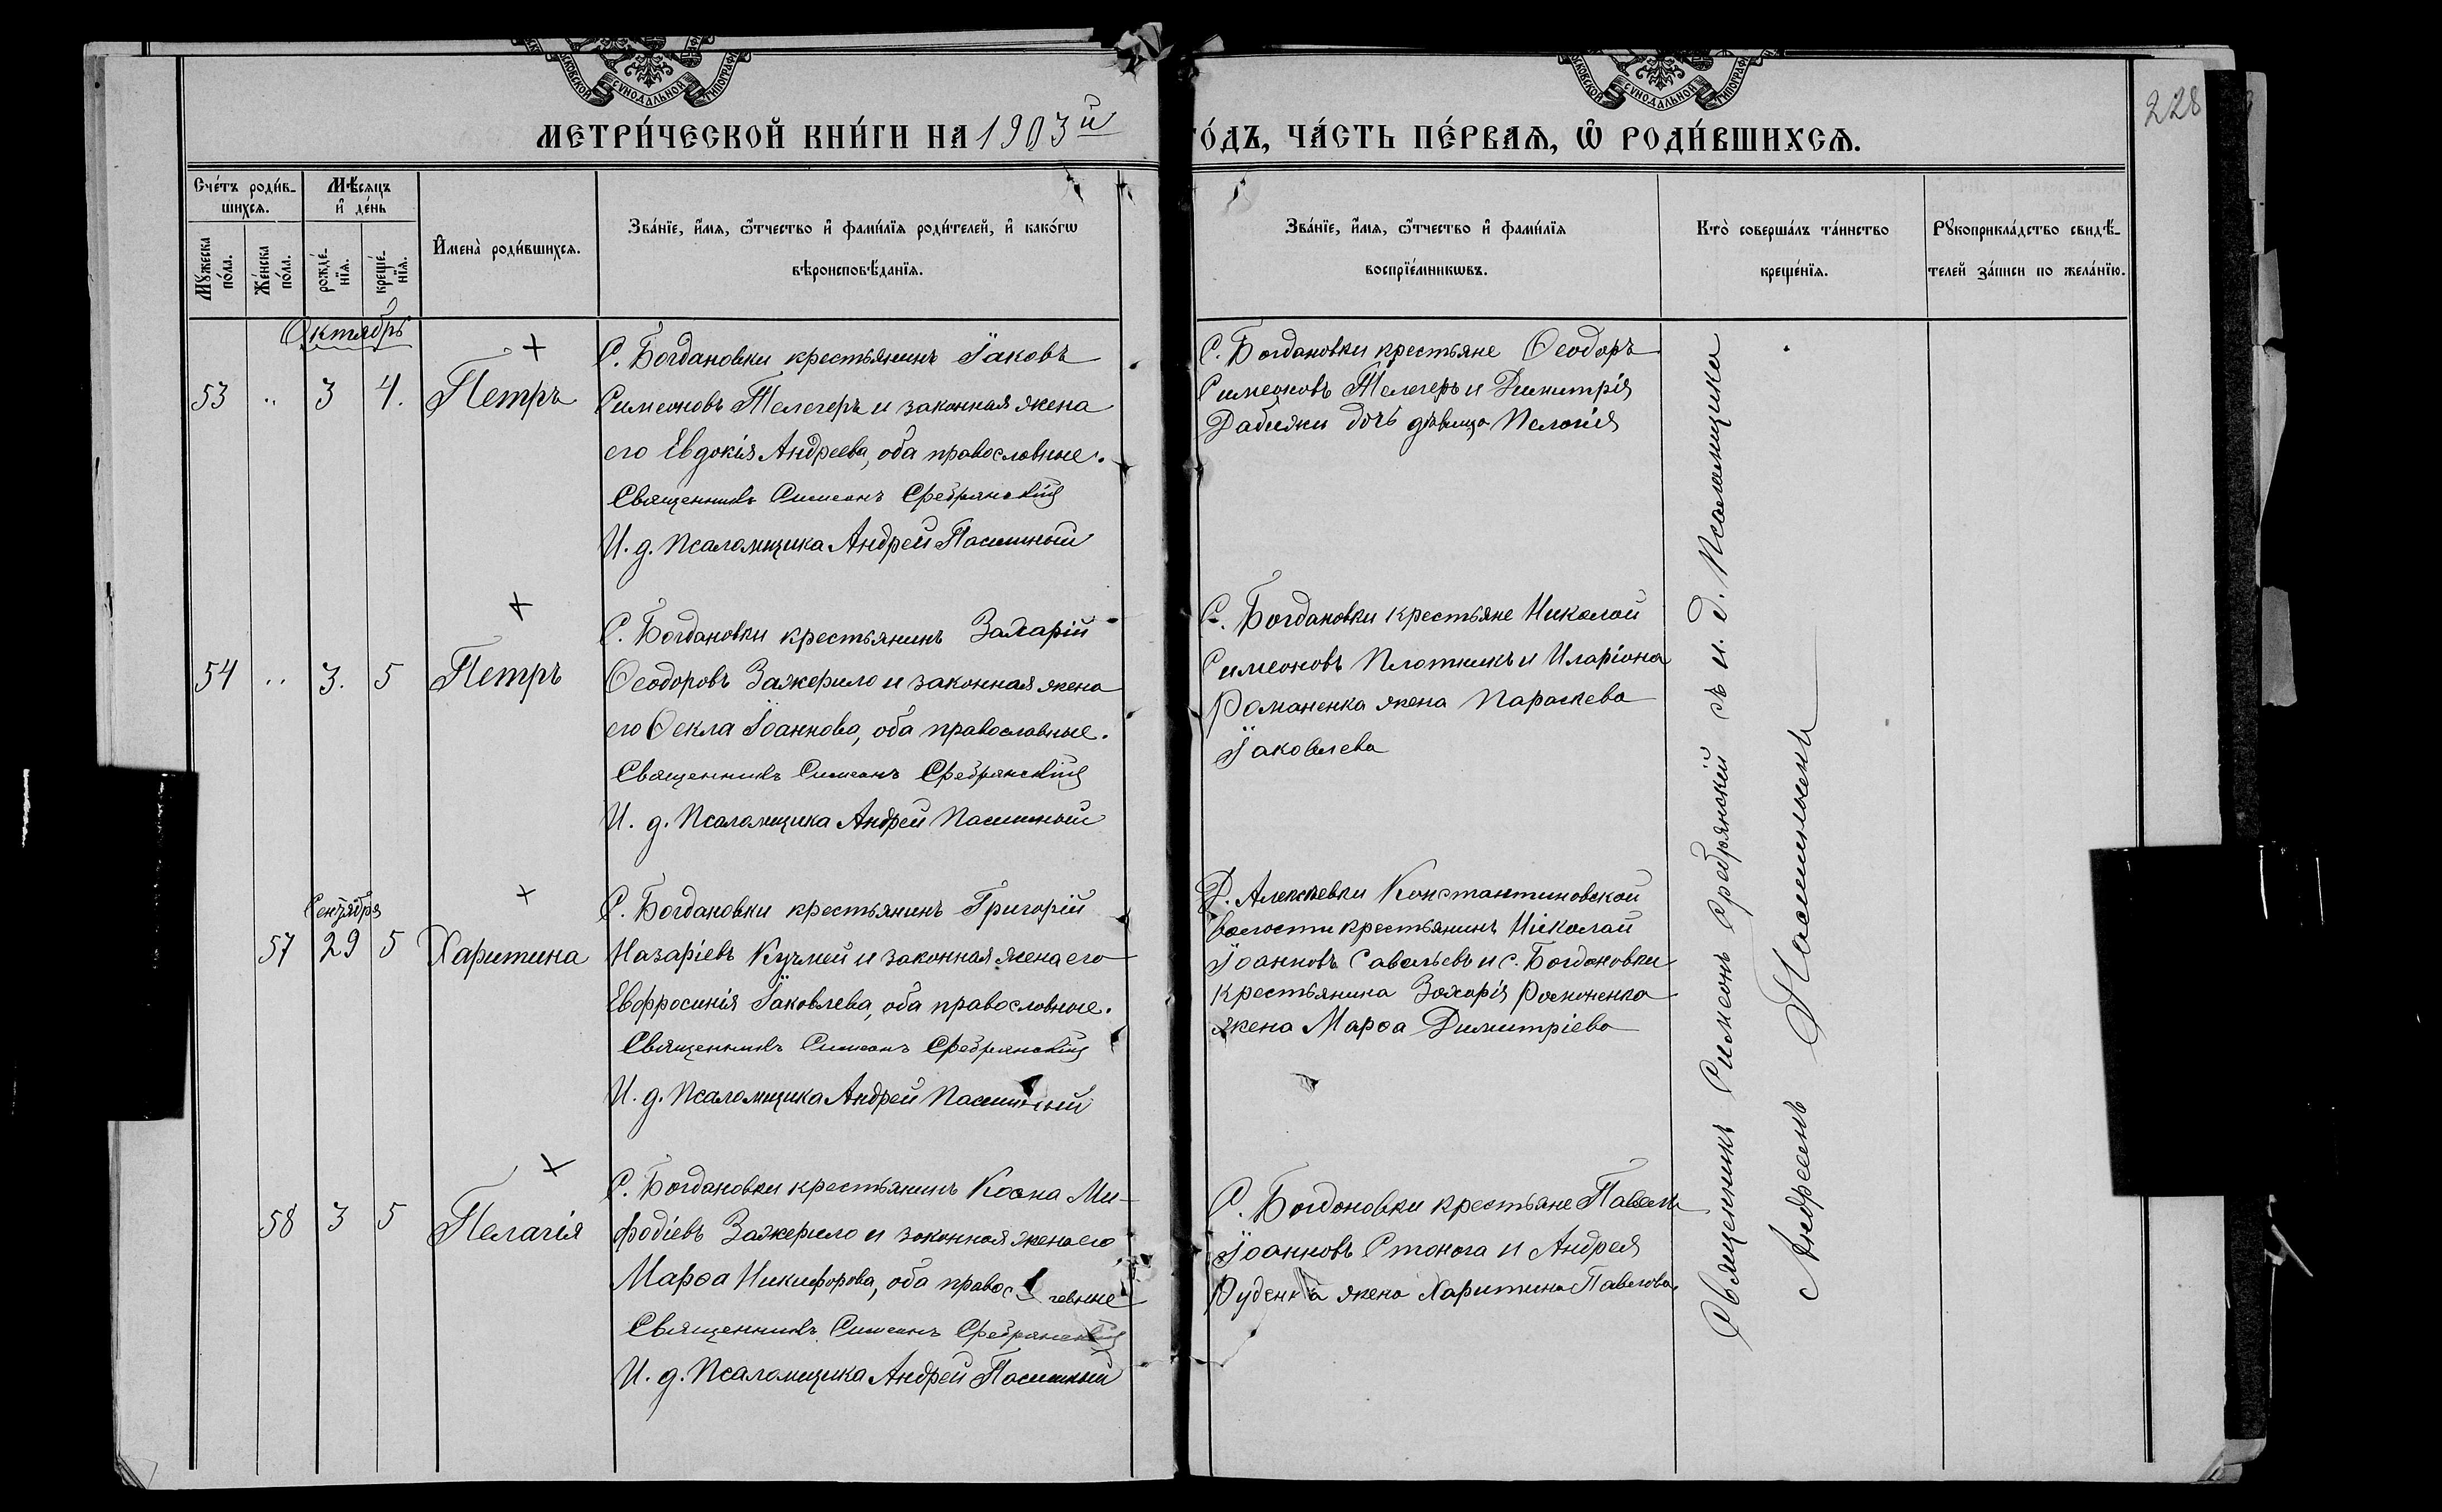 МОСКОВСКОЙ СѴНОДАЛЬНОЙ ТИПОГРАФІ
МОСКОВСКОЙ СѴНОДАЛЬНОЙ ТИПОГРАФІ
228
МЕТРИ́ЧЕСКОЙ КНИ́ГИ НА 1903й
ГО́ДЪ, ЧА́СТЬ ПЕ́РВАѦ, Ѡ РОДИ́ВШИХСѦ.
Сче́тъ роди́в-
шихсѧ.
Мѣ́сѧцъ
и҆ де́нь
Мꙋ́жеска
по́ла.
Же́нска
по́ла.
рожде́-
нїѧ.
креще́-
нїѧ.
И҆мена̀ роди́вшихсѧ.
Зва́нїе, и҆́мѧ, ѻ҆́тчество и҆ фами́лїѧ роди́телей, и҆ како́гѡ
вѣроисповѣ́данїѧ.
Зва́нїе, и҆́мѧ, ѻ҆́тчество и҆ фами́лїѧ
воспрїе́мникѡвъ.
Кто̀ соверша́лъ та́инство
креще́нїѧ.
Рꙋкоприкла́дство свидѣ́-
телей за́писи по жела́нїю.
Октябрь
53 " 3 4. Петръ
С. Богдановки крестьянинъ Іаковъ
Симеоновъ Телегеръ и законная жена
его Евдокія Андреева, оба православные.
Священникъ Симеонъ Сребрянскій
И. д. Псаломщика Андрей Пасишный
С. Богдановки крестьяне Ѳеодоръ
Симеоновъ Телегеръ и Димитрія
дочь дѣвица Пелагія
54 " 3. 5 Петръ
С. Богдановки крестьянинъ Захарій
Ѳеодоровъ Зажерило и законная жена
его Ѳекла Іоаннова, оба православные.
Священникъ Симеонъ Сребрянскій
И. д. Псаломщика Андрей Пасишный
С. Богдановки крестьяне Николай
Симеоновъ Плотникъ и Иларіона
Романенка жена Параскева
Іаковлева
Сентября
57 29 5 Харитина
С. Богдановки крестьянинъ Григорій
Назаріевъ Кучмей и законная жена его
Евфросинія Іаковлева, оба православные.
Священникъ Симеонъ Сребрянскій
И. д. Псаломщика Андрей Пасишный
Д. Алексѣевки Константиновской
волости крестьянинъ Николай
Іоанновъ Савельевъ и с. Богдановки
крестьянина Захарія
жена Марѳа Димитріева
58 3 5 Пелагія
С. Богдановки крестьянинъ Косма Ми-
фодіевъ Зажерило и законная жена его
Марѳа Никифорова, оба православные
Священникъ Симеонъ Сребрянскій
И. д. Псаломщика Андрей Пасишный
С. Богдановки крестьяне Павелъ
Іоанновъ Стонога и Андрея
Руденка жена Харитина Павлова
Священникъ Симеонъ Сребрянскій съ и. д. Псаломщика
Андреемъ Пасишнымъ